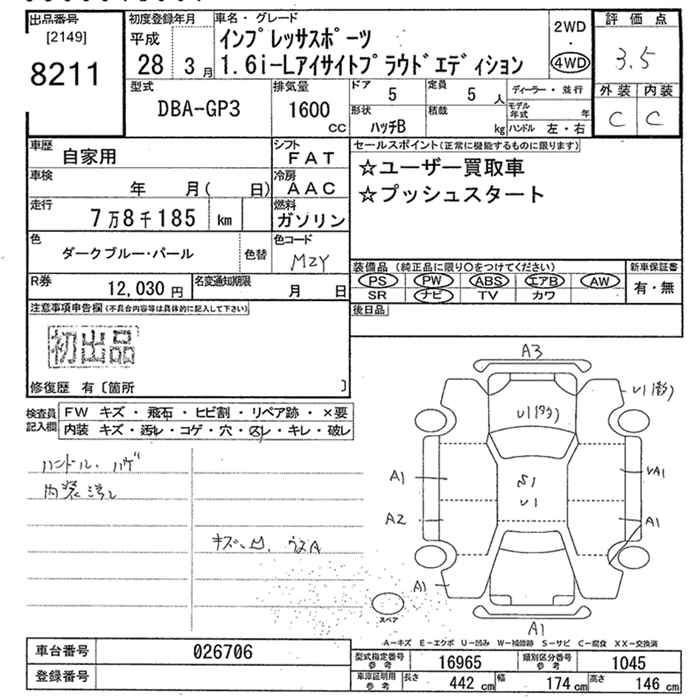 出品番号
[2149]
8211
初度登録年月
平成
28 3月
車名・グレード
インプレッサスポーツ
1.6i-Lアイサイトプラウドエディション
2WD
・
4WD
評価点
3.5
外装 内装
C C
型式
DBA-GP3
排気量
1600
CC
ドア
5
定員
5 人
ディーラー・並行
形状
ハッチB
積載
kg
モデル年式 年
ハンドル 左・右
車歴
自家用
シフト
FAT
車検
年 月( 日)
冷房
AAC
走行
7万8千185 km
燃料
ガソリン
色
ダークブルー・パール
色替
色コード
MZY
R券
12,030円
名変通知期限
月 日
セールスポイント(正常に機能するものに限ります)
☆ユーザー買取車
☆プッシュスタート
装備品 (純正品に限り○をつけてください)
新車保証書
PS PW ABS エアB AW
有・無
SR ナビ TV カワ
後日品
注意事項申告欄(不具合内容等は具体的に記入して下さい)
初出品
修復歴 有〔箇所 〕
検査員記入欄
FW キズ・飛石・ヒビ割・リペア跡・×要
内装 キズ・汚レ・コゲ・穴・凹レ・キレ・破レ
ハンドル.ハゲ
内装汚レ
キズ、凹.ウスA
A3
U1
U1
S1
U1
A1
A2
A1
A1
A1
A1
スペア
A-キズ E-エクボ U-凹み W-補修跡 S-サビ C-腐食 XX-交換済
車台番号
026706
登録番号
型式指定番号
参考
16965
類別区分番号
参考
1045
車庫証明用
参考
長さ 442 cm
幅 174 cm
高さ 146 cm